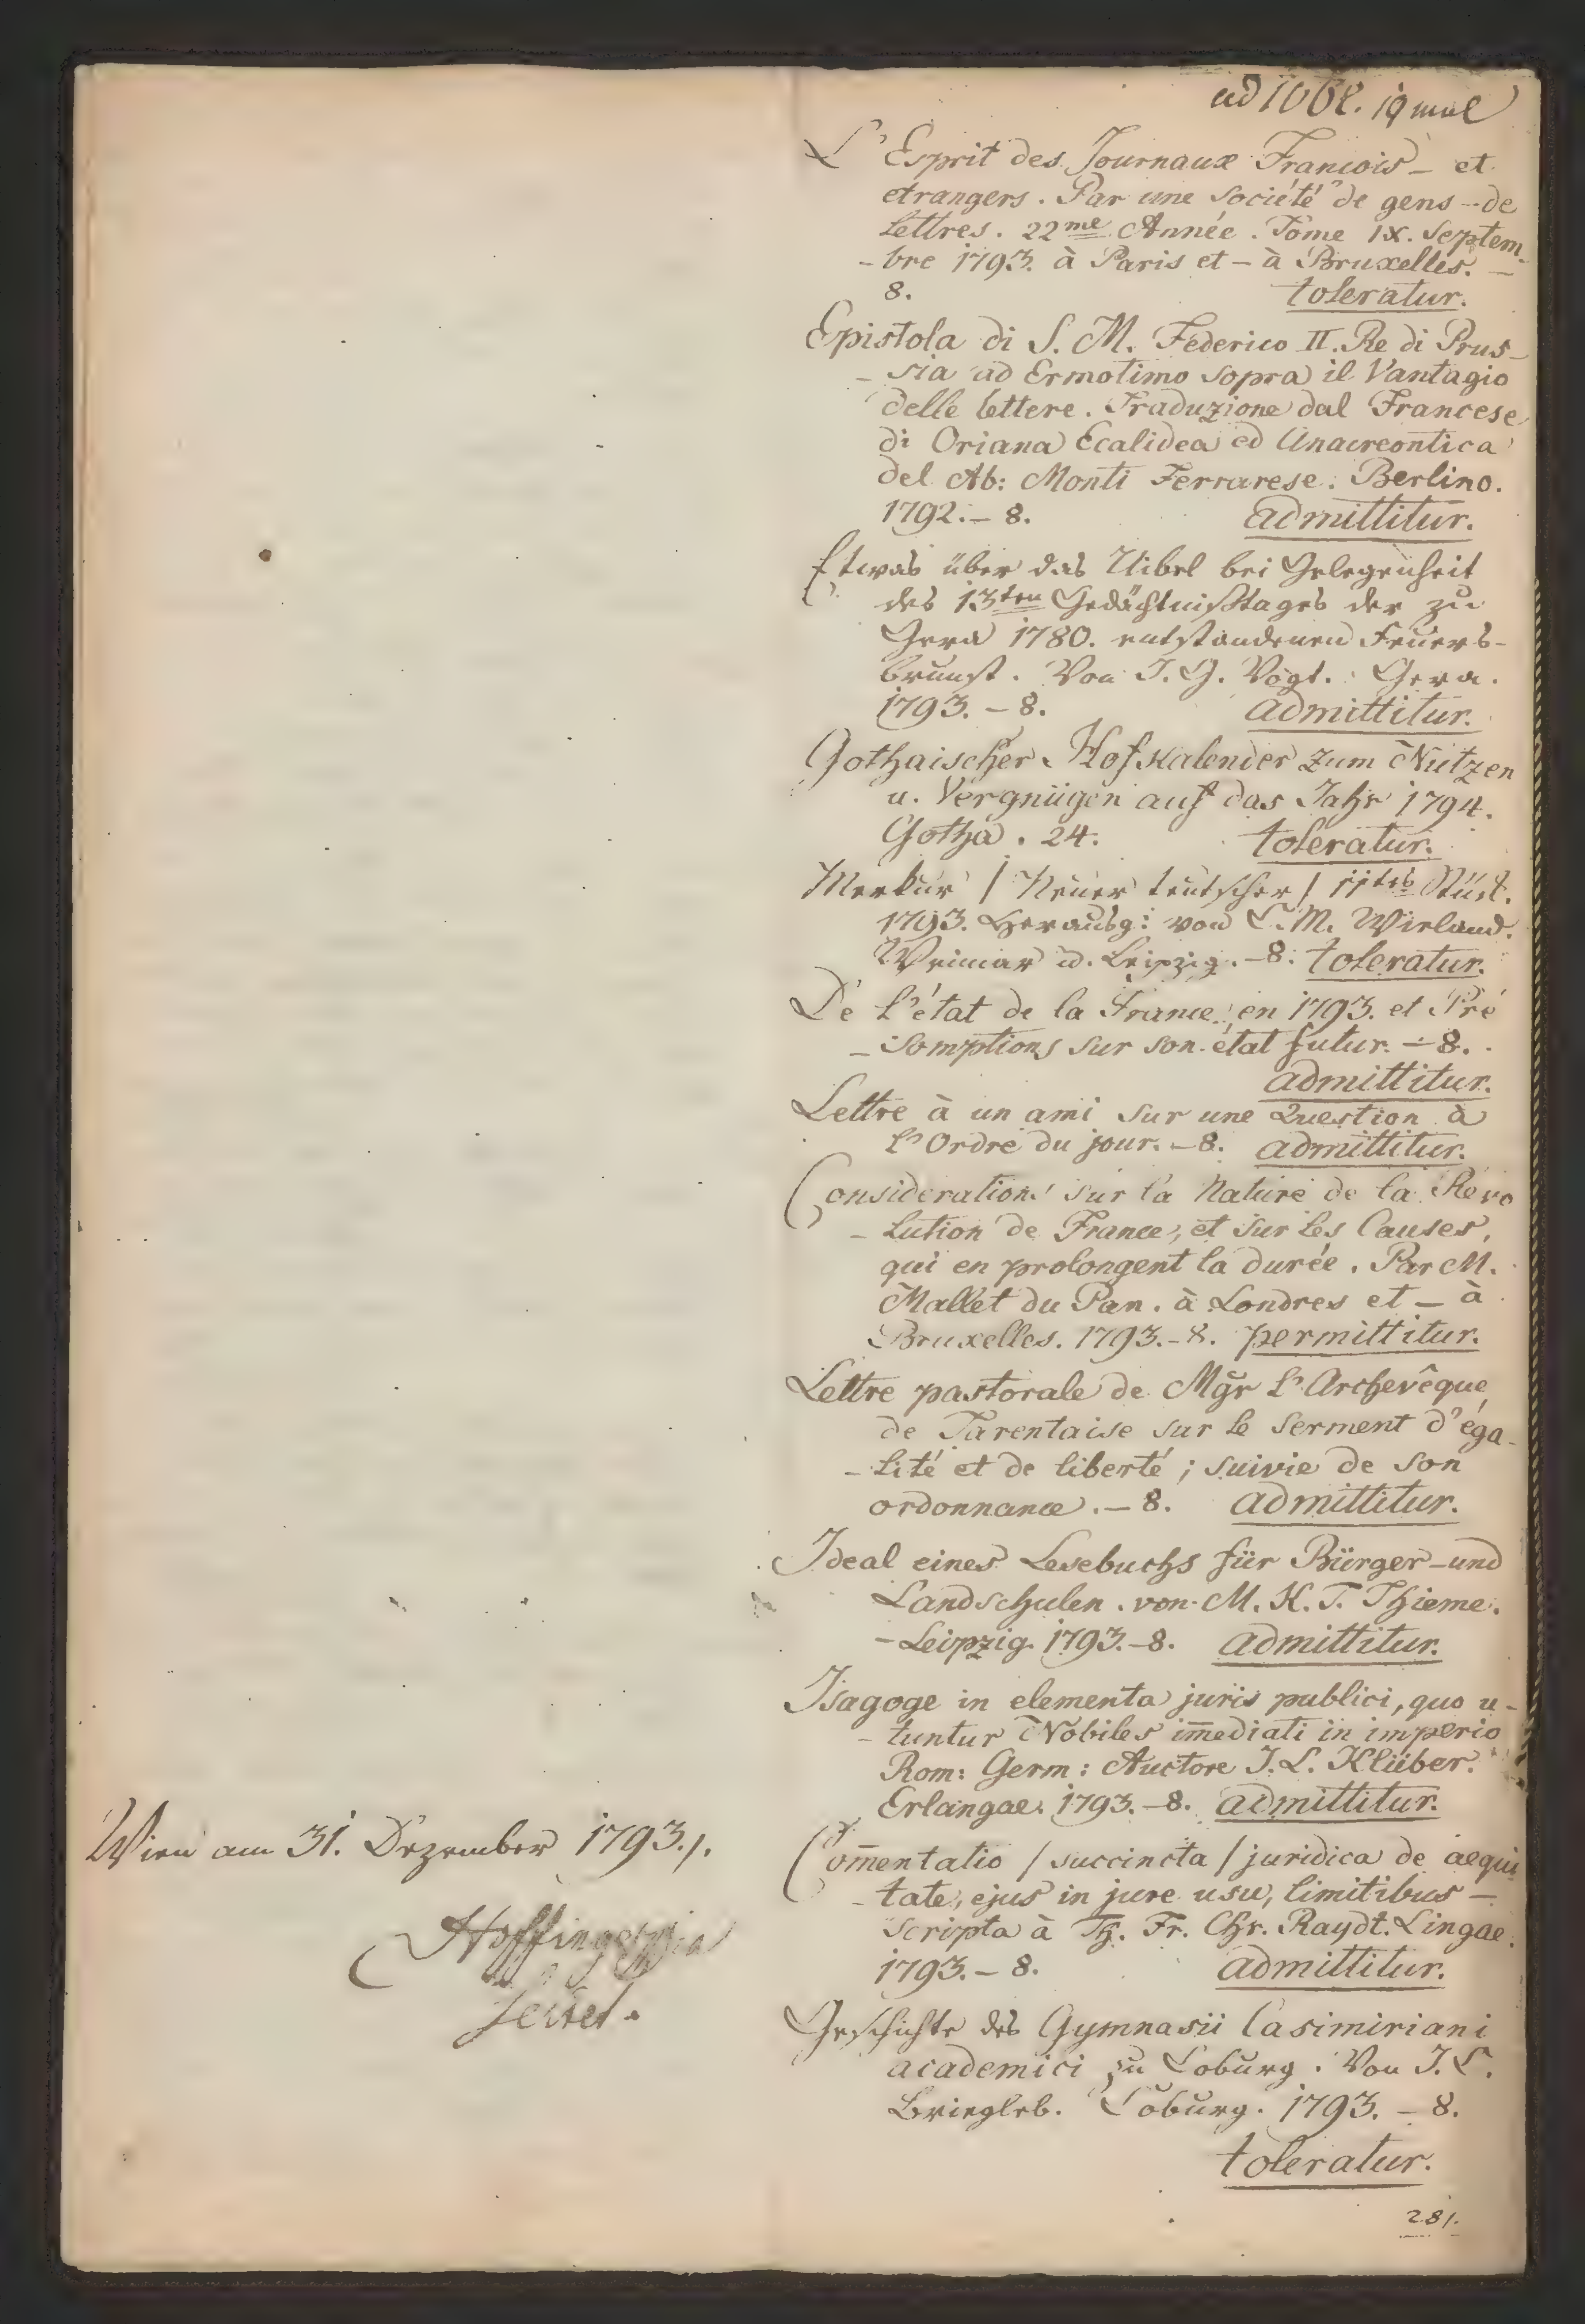 ad 1068. 19 mal
L'Esprit des Journaux Francois - et
etrangers. Par une Société de gens - de
lettres. 22me Année. Tome IX. Septem-
-bre 1793. à Paris et - à Bruxelles. -
8. toleratur.
Epistola di S. M. Federico II. Re di Prus-
-sia ad Ermotimo sopra il Vantagio
delle lettere. Traduzione dal Francese
di Oriana Ecalidea ed Anacreontica
del Ab: Monti Ferrarese. Berlino.
1792. - 8. admittitur.
Etwas über das Uibel bei Gelegenheit
des 13ten Gedächtnißtages der zu
Gera 1780. entstandenen Feuers-
brunst. Von J. G. Vogt. Gera.
1793. - 8. admittitur.
Gothaischer Hofkalender zum Nutzen
u. Vergnügen auf das Jahr 1794.
Gotha. 24. toleratur.
Merkur / Neuer teutscher / 11tes Stück.
1793. Herausg: von C. M. Wieland.
Weimar u. Leipzig. - 8. toleratur.
De l'état de la France, en 1793. et Pré
-somptions sur son état futur. - 8.
admittitur.
Lettre à un ami sur une Question à
l'Ordre du jour. - 8. admittitur.
Considerations sur la Nature de la Revo
-lution de France, et sur les Causes,
qui en prolongent la durée. Par M.
Mallet du Pan. à Londres et - à
Bruxelles. 1793. - 8. permittitur.
Lettre pastorale de Mgr l'Archevêque
de Tarentaise sur le Serment d'éga-
-lité et de liberté; suivie de son
ordonnance. - 8. admittitur.
Ideal eines Lesebuchs für Bürger - und
Landschulen. von M. K. T. Thieme.
- Leipzig. 1793. - 8. admittitur.
Isagoge in elementa juris publici, quo u-
-tuntur Nobiles im̄ediati in imperio
Rom: Germ: Auctore J. L. Klüber.
Erlangae. 1793. - 8. admittitur.
Com̄entatio / succincta / juridica de aequi
-tate, ejus in jure usu, limitibus -
scripta à Th. Fr. Chr. Raydt. Lingae.
1793. - 8. admittitur.
Geschichte des Gymnasii Casimiriani
academici zu Coburg. Von J. C.
Briegleb. Coburg. 1793. - 8.
toleratur.
281.
Wien am 31. Dezember 1793./.
Hoffinger